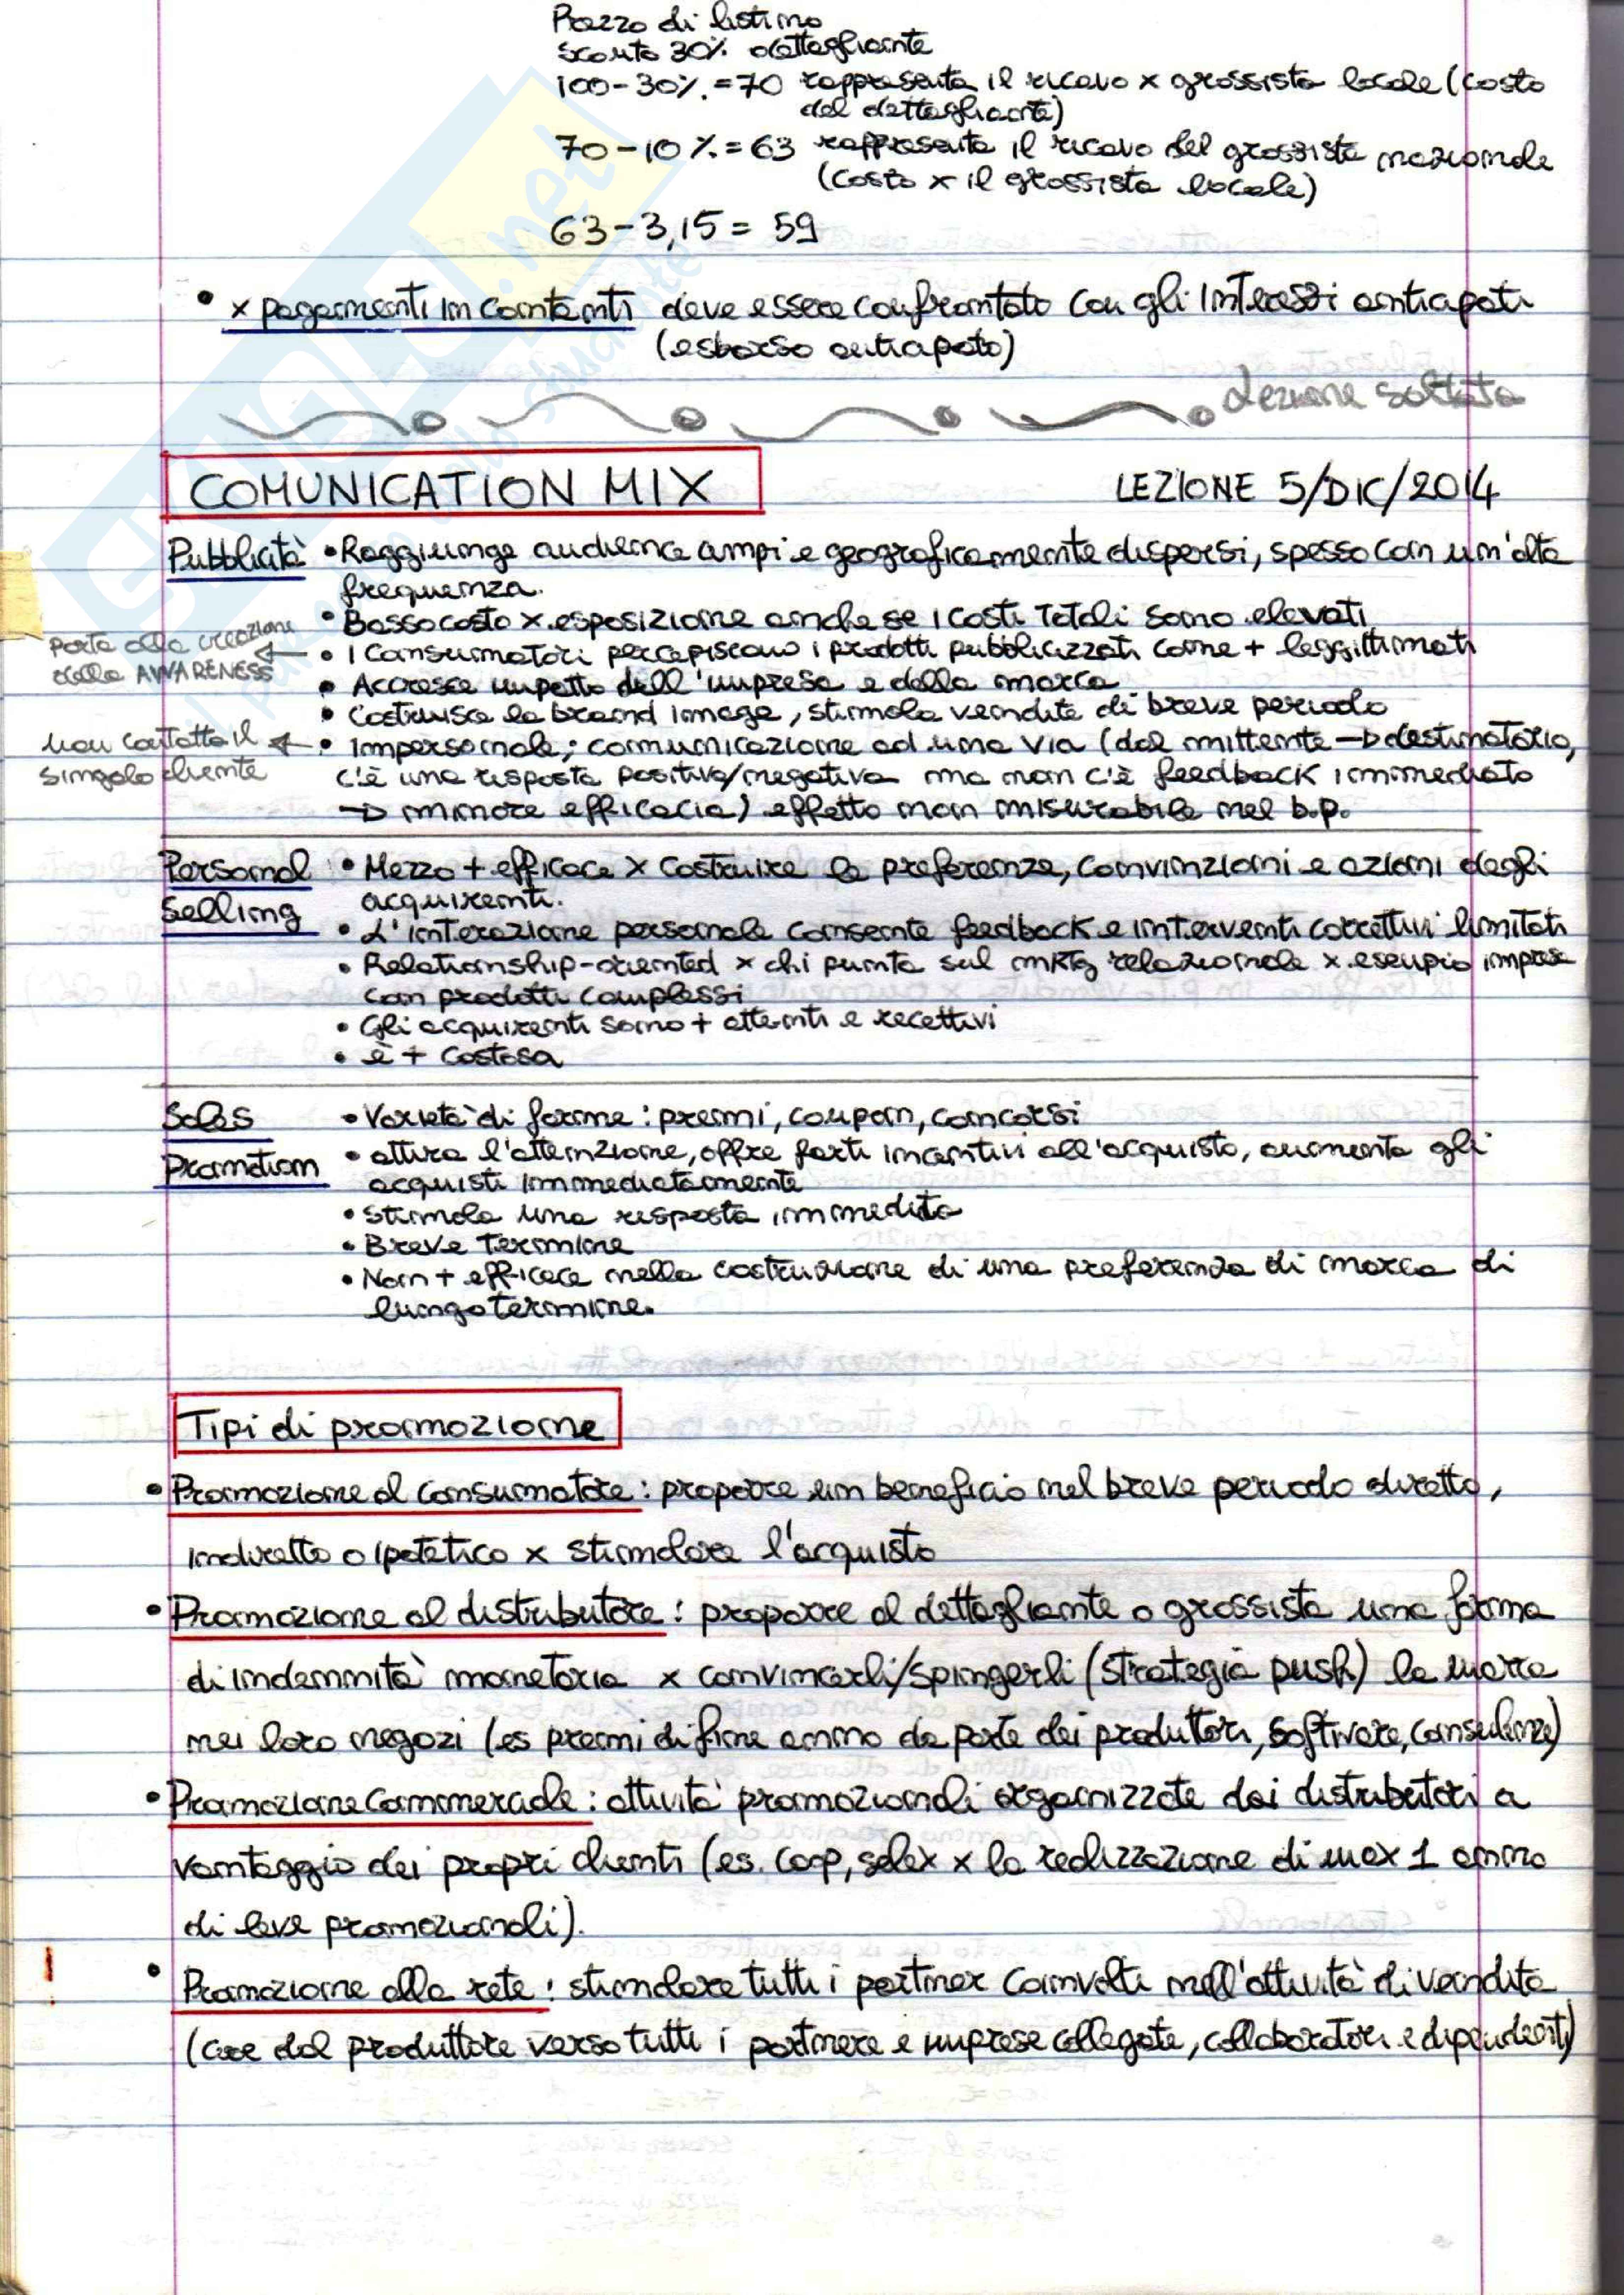 Prezzo di listino
sconto 30% dettagliante
100-30% = 70 rappresenta il ricavo x grossista locale (costo
del dettagliante)
70-10% = 63 rappresenta il ricavo del grossista nazionale
(costo x il grossista locale)
63-3,15 = 59
• x pagamenti in contanti deve essere confrontato con gli interessi anticipati
(esborso anticipato)
Lezione saltata
COMUNICATION MIX LEZIONE 5/DIC/2014
Pubblicità • Raggiunge audience ampi e geograficamente dispersi, spesso con un'alta
frequenza.
• Basso costo x esposizione anche se i costi totali sono elevati
porta alla creazione
della AWARENESS ← • I consumatori percepiscono i prodotti pubblicizzati come + leggittimati
• Accresce impatto dell'impresa e della marca
• Costruisce la brand image, stimola vendite di breve periodo
non contatta il
singolo cliente ← • Impersonale; comunicazione ad una via (dal mittente → destinatario,
c'è una risposta positiva/negativa ma non c'è feedback immediato
→ minore efficacia) effetto non misurabile nel b.p.
Personal • Mezzo + efficace x costruire le preferenze, convinzioni e azioni degli
Selling acquirenti.
• L'interazione personale consente feedback e interventi correttivi limitati
• Relationship-oriented x chi punta sul mktg relazionale x esempio imprese
con prodotti complessi
• Gli acquirenti sono + attenti e recettivi
• è + costosa
Sales • Varietà di forme: premi, coupon, concorsi
Promotion • attira l'attenzione, offre forti incentivi all'acquisto, aumenta gli
acquisti immediatamente
• stimola una risposta immedita
• Breve termine
• Non + efficace nella costruzione di una preferenza di marca di
lungo termine.
Tipi di promozione
• Promozione al consumatore: proporre un beneficio nel breve periodo diretto,
indiretto o ipotetico x stimolare l'acquisto
• Promozione al distributore: proporre al dettagliante o grossista una forma
di indennità monetaria x convincerli/spingerli (strategia push) la marca
nei loro negozi (es premi di fine anno da parte dei produttori, software, consulenze)
• Promozione commerciale: attività promozionali organizzate dai distributori a
vantaggio dei propri clienti (es. Coop, selex x la realizzazione di max 1 anno
di leve promozionali).
! • Promozione alla rete: stimolare tutti i partner coinvolti nell'attività di vendita
(cioe dal produttore verso tutti i partnere e imprese collegate, collaboratori e dipendenti)